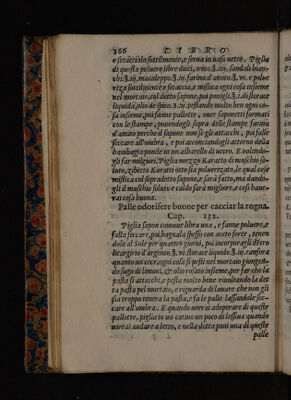 166 LIBRO
e setacciato sottilmente, e serva in vaso netto. Piglia
di questa polvere libre dieci, sandali bian
chi. farina d'amito. e polve
riza sottilmente e setaccia, e mistica ogni cosa insieme
nel mortaio, col detto sapone, poi pongli storace
liquida, olio de spico. pestando molto ben ogni co-
sa insieme, poi fanne pallotte, over saponetti formati
con le stampe, ponendogli sopra delle stampe farina
d'amito perche il sapone non se gli attacchi, poi falle
seccare all'ombra, e poi accomodagli attorno della
bambagia ponile in un albarello di vetro. E volendo-
gli far migliori. Piglia mezzo Karatto di muschio so-
luto, zibetto Karatti tutto sia polverizato, le qual cose
mistica col sopradetto sapone, e sarà fatto, ma dando-
gli il muschio soluto e caldo sarà migliore, e così have-
rai cosa buona.
Palle odorifere buone per cacciar la rogna.
Cap. 132.
Piglia sapon comune libra una, e fanne polvere, e
falla seccare, poi bagnala spesso con aceto forte, tenen
dolo al Sole per quattro giorni, poi incorporagli dẽtro
litargirio d'argento. storace liquido. canfora
quanto un cece, ogni cosa si pesti nel mortaio giongen-
do sugo di limoni, & olio rosato insieme, per far che la
pasta si attacchi, e pesta molto bene rivoltando la det
ta pasta pel mortaio, e riguarda di lavare che non gli
sia troppo tenera la pasta, e fa le palle lassandole sec-
care all'ombra. E quando vorrai adoperare di queste
pallotte, piglia in un catino un poco di lessiva quando
vorrai andare a letto, e nella detta poni una di queste
palle